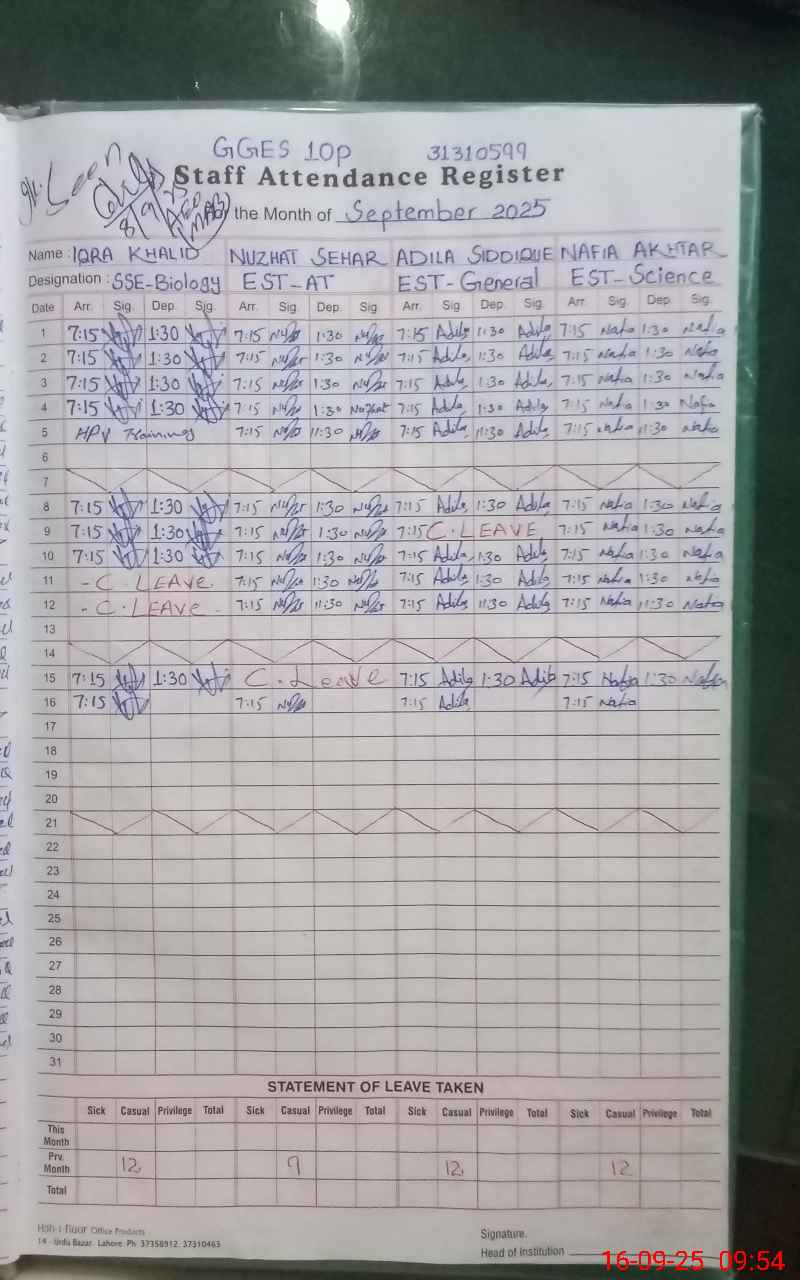 GGES 10p 31310599
Seen
8/9/25
AEO
Staff Attendance Register
the Month of September 2025
Name : IQRA KHALID NUZHAT SEHAR ADILA SIDDIQUE NAFIA AKHTAR
Designation : SSE-Biology EST-AT EST-General EST-Science
Date Arr. Sig. Dep. Sig. Arr. Sig. Dep. Sig. Arr. Sig. Dep. Sig. Arr. Sig. Dep. Sig.
1 7:15 1:30 7:15 1:30 7:15 Adila 1:30 Adila 7:15 Nafia 1:30 Nafia
2 7:15 1:30 7:15 1:30 7:15 Adila 1:30 Adila 7:15 Nafia 1:30 Nafia
3 7:15 1:30 7:15 1:30 7:15 Adila 1:30 Adila 7:15 Nafia 1:30 Nafia
4 7:15 1:30 7:15 1:30 Nuzhat 7:15 Adila 1:30 Adila 7:15 Nafia 1:30 Nafia
5 HPV Training 7:15 11:30 7:15 Adila 11:30 Adila 7:15 Nafia 11:30 Nafia
6
7
8 7:15 1:30 7:15 1:30 7:15 Adila 1:30 Adila 7:15 Nafia 1:30 Nafia
9 7:15 1:30 7:15 1:30 7:15 C. LEAVE 7:15 Nafia 1:30 Nafia
10 7:15 1:30 7:15 1:30 7:15 Adila 1:30 Adila 7:15 Nafia 1:30 Nafia
11 - C LEAVE. 7:15 1:30 7:15 Adila 1:30 Adila 7:15 Nafia 1:30 Nafia
12 - C. LEAVE. 7:15 11:30 7:15 Adila 11:30 Adila 7:15 Nafia 11:30 Nafia
13
14
15 7:15 1:30 C. Leave 7:15 Adila 1:30 Adila 7:15 Nafia 1:30 Nafia
16 7:15 7:15 7:15 Adila 7:15 Nafia
17
18
19
20
21
22
23
24
25
26
27
28
29
30
31
STATEMENT OF LEAVE TAKEN
Sick Casual Privilege Total Sick Casual Privilege Total Sick Casual Privilege Total Sick Casual Privilege Total
This Month
Prv. Month 12 9 12 12
Total
Office Products
14 - Urdu Bazar, Lahore. Ph: 37358912, 37310463
Signature.
Head of Institution
16-09-25 09:54